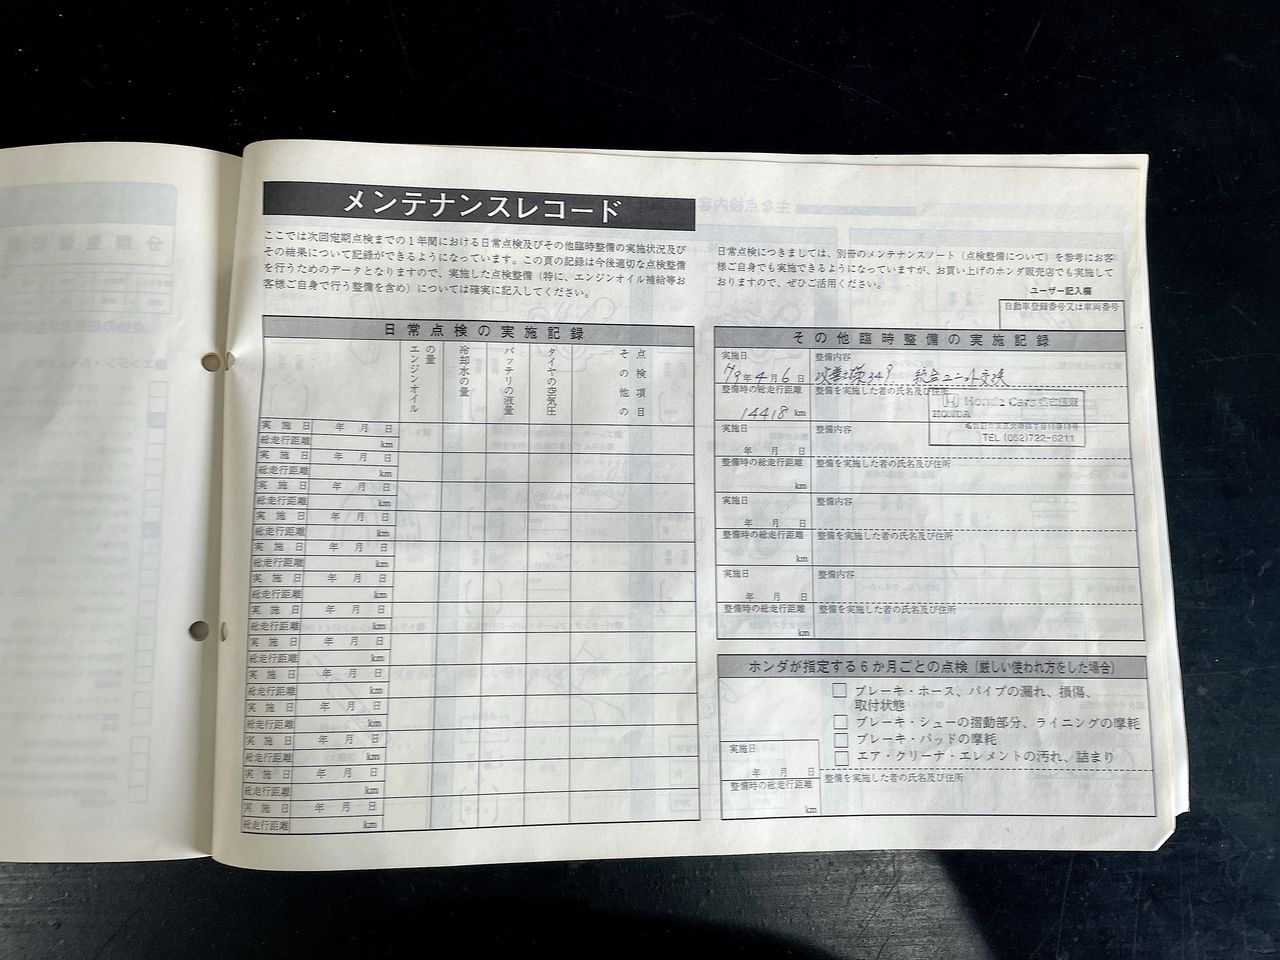 メンテナンスレコード
ここでは次回定期点検までの1年間における日常点検及びその他臨時整備の実施状況及び
その結果について記録ができるようになっています。この頁の記録は今後適切な点検整備
を行うためのデータとなりますので、実施した点検整備（特に、エンジンオイル補給等お
客様ご自身で行う整備を含め）については確実に記入してください。
日常点検の実施記録
エンジンオイル
の量
冷却水の量
バッテリの液量
タイヤの空気圧
その他の
点検項目
実施日 年 月 日
総走行距離 km
実施日 年 月 日
総走行距離 km
実施日 年 月 日
総走行距離 km
実施日 年 月 日
総走行距離 km
実施日 年 月 日
総走行距離 km
実施日 年 月 日
総走行距離 km
実施日 年 月 日
総走行距離 km
実施日 年 月 日
総走行距離 km
実施日 年 月 日
総走行距離 km
実施日 年 月 日
総走行距離 km
実施日 年 月 日
総走行距離 km
実施日 年 月 日
総走行距離 km
実施日 年 月 日
総走行距離 km
日常点検につきましては、別冊のメンテナンスノート（点検整備について）を参考にお客
様ご自身でも実施できるようになっていますが、お買い上げのホンダ販売店でも実施して
おりますので、ぜひご活用ください。
ユーザー記入欄
自動車登録番号又は車両番号
その他臨時整備の実施記録
実施日 整備内容
19年4月6日 349 ユニット交換
整備時の総走行距離 整備を実施した者の氏名及び住所
14418 km
Honda Cars
HONDA
TEL (052)722-6211
実施日 整備内容
年 月 日
整備時の総走行距離 整備を実施した者の氏名及び住所
km
実施日 整備内容
年 月 日
整備時の総走行距離 整備を実施した者の氏名及び住所
km
実施日 整備内容
年 月 日
整備時の総走行距離 整備を実施した者の氏名及び住所
km
ホンダが指定する6か月ごとの点検（厳しい使われ方をした場合）
ブレーキ・ホース、パイプの漏れ、損傷、
取付状態
ブレーキ・シューの摺動部分、ライニングの摩耗
ブレーキ・パッドの摩耗
エア・クリーナ・エレメントの汚れ、詰まり
実施日
年 月 日
整備時の総走行距離 整備を実施した者の氏名及び住所
km